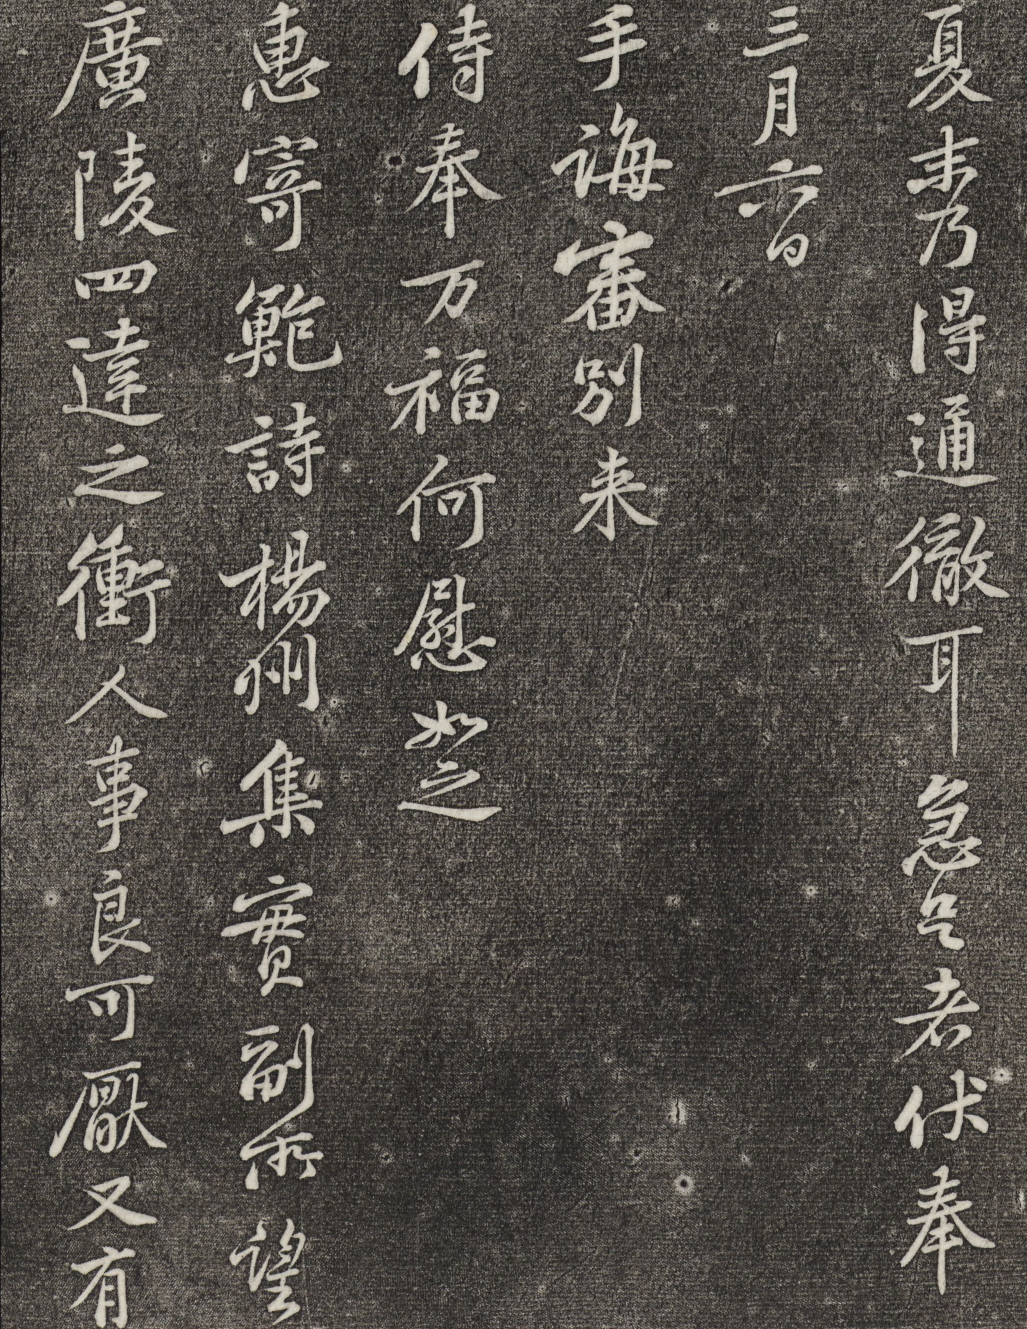 夏末乃得通徹耳急足者伏奉
三月六日
手誨審別来
侍奉万福何慰如之
惠寄鮑詩楊州集實副所望
廣陵四達之衝人事良可厭又有